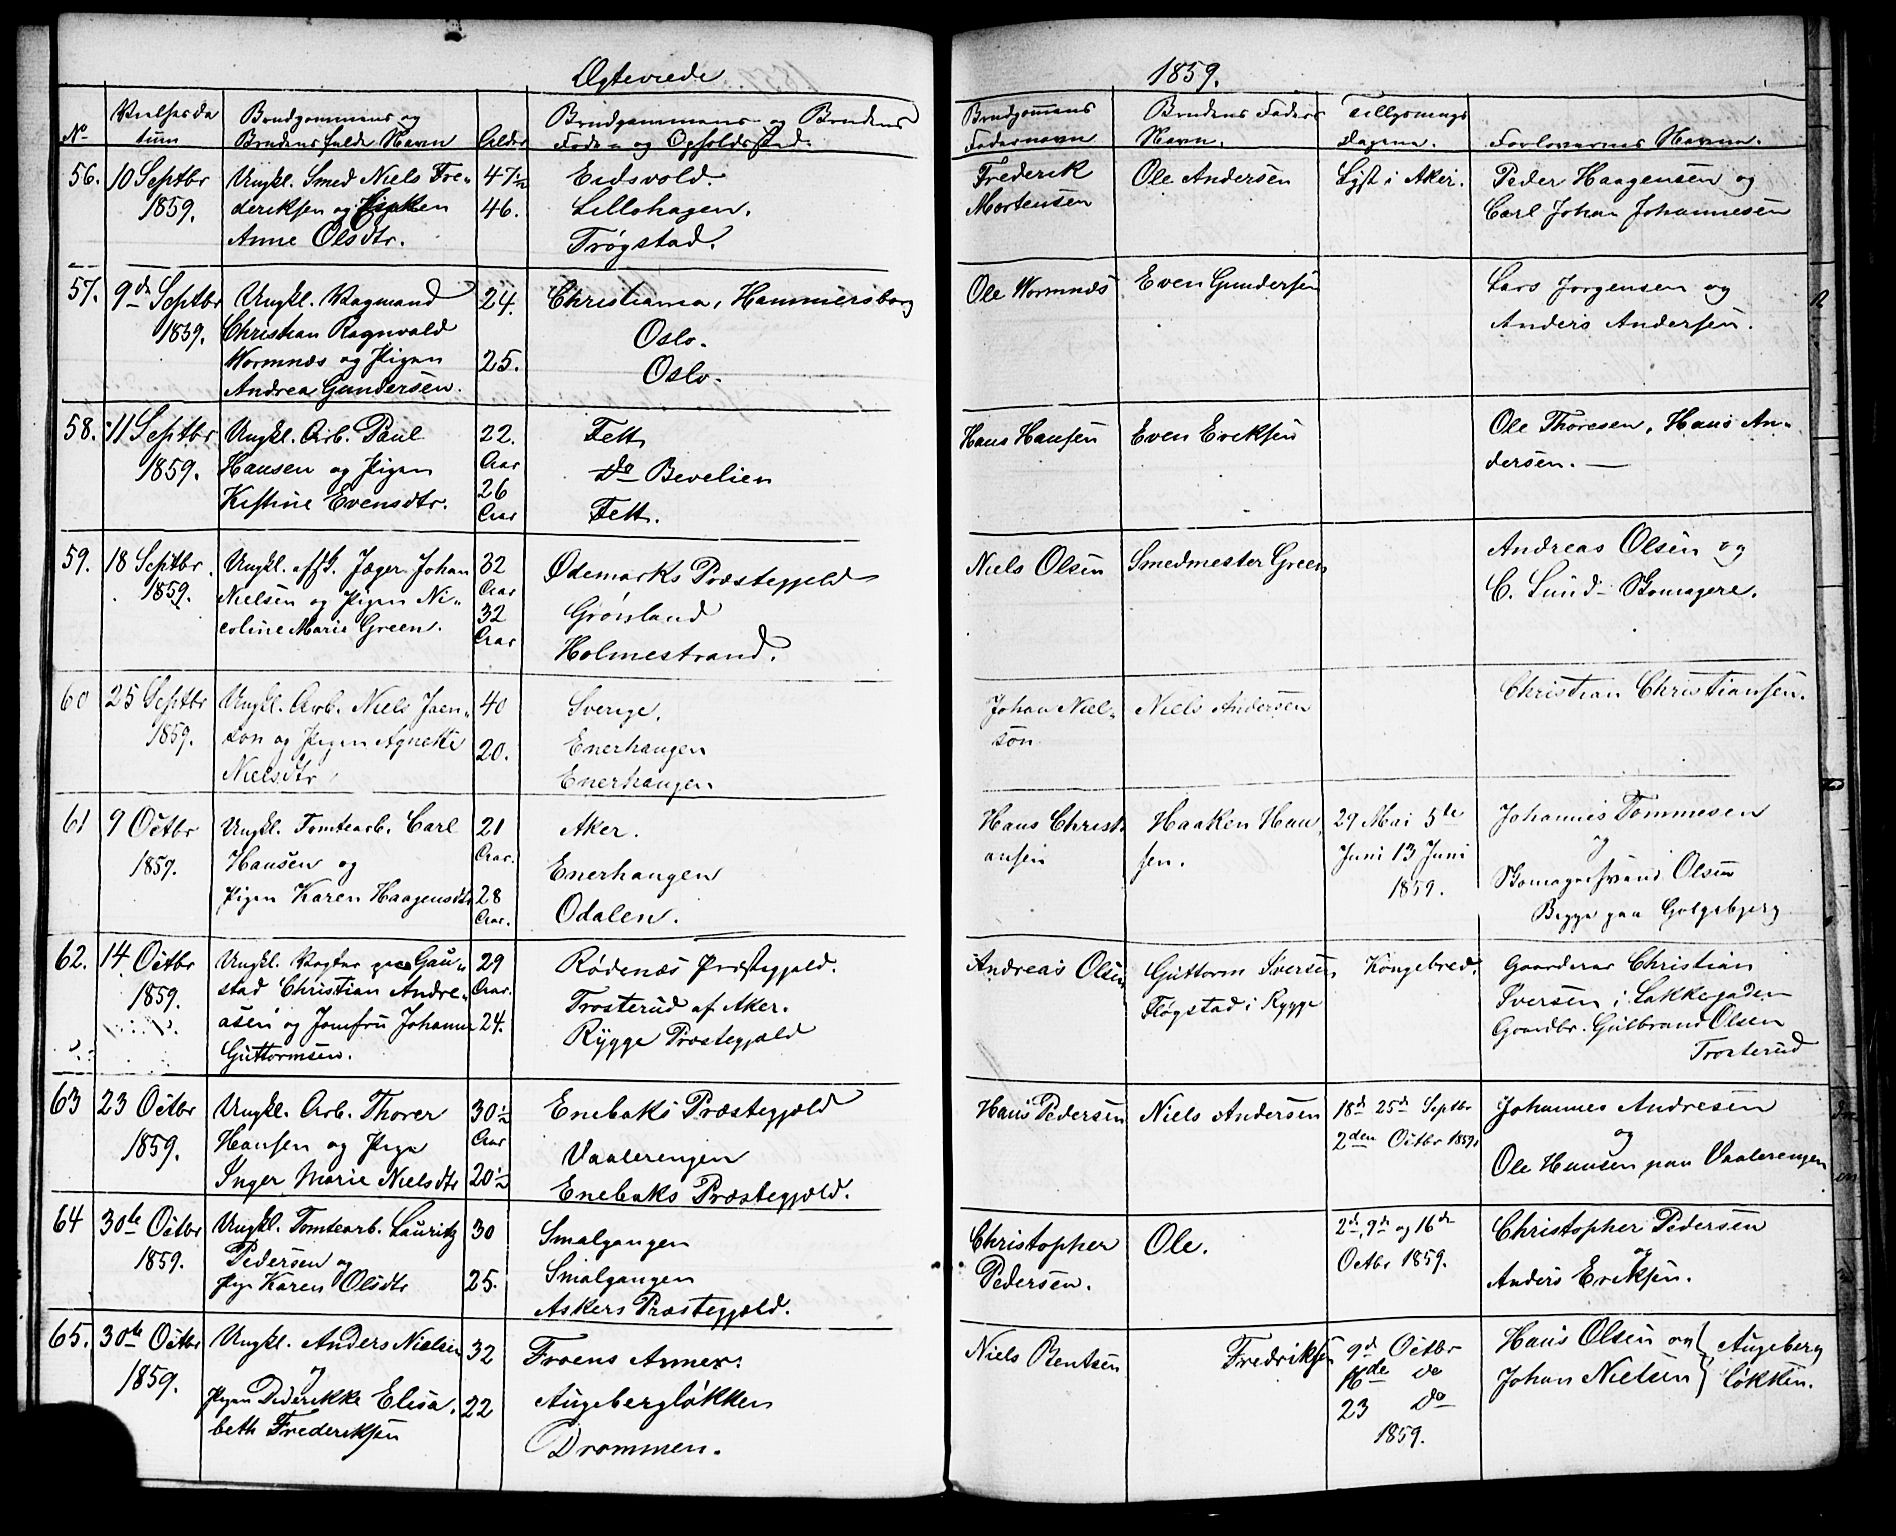 Ægteviede
1859.
No
Vielsesda
tum
Brudgommens og
Brudens fulde Navn
Alder
Brudgommens og Brudens
Føde- og Opholdssted.
Brudgomens
Fadernavn
Brudens Faders
Navn.
Tillysnings
dagene.
Forlovernes Navne.
56.
10 Septbr
1859.
Ungkl. Smed Niels Fre-
deriksen og Enken
Anne Olsdtr.
47½
46.
Eidsvold.
Lillohagen.
Trøgstad.
Frederik
Mortensen
Ole Andersen
Lyst i Aker.
Peder Haagensen og
Carl Johan Johannesen
57.
9de Septbr
1859.
Ungkl. Vognmand
Christian Ragnvald
Wormnæs og Pigen
Andrea Gundersen.
24.
25.
Christiania, Hammersborg
Oslo.
Oslo.
Ole Wormnæs
Even Gundersen
Lars Jørgensen og
Anders Andersen.
58.
11 Septbr
1859.
Ungkl. Arb. Paul
Hansen og Pigen
Kistine Evensdtr.
22.
Aar
26
Aar
Fett
do Bevelien
Fett.
Hans Hansen
Even Eriksen
Ole Thoresen, Hans An-
dersen. —
59.
18 Septbr
1859.
Ungkl. affsk. Jæger Johan
Nielsen og Pigen Ni-
coline Marie Green.
32
Aar
32
Aar
Ødemarks Præstegjeld
Grønland
Holmestrand.
Niels Olsen
Smedmester Green
Andreas Olsen og
C. Lund Skomagere.
60
25 Septbr
1859.
Ungkl. Arb. Niels Joen-
son og Pigen Agnette
Nielsdtr
40
20.
Sverige.
Enerhaugen
Enerhaugen
Johan Niel-
son
Niels Andersen
Christian Christiansen.
61
9 Octbr
1859.
Ungkl. Tomtearb. Carl
Hansen og
Pigen Karen Haagensdtr
21
Aar.
28
Aar.
Aker.
Enerhaugen
Odalen.
Hans Christi
ansen
Haaken Han
sen.
29 Mai 5te
Juni 13 Juni
1859.
Johannes Tommesen
og
Skomagersvend Olsen
Begge paa Galgebjerg
62.
14 Octbr
1859.
Ungkl. Vogter paa Gau-
stad Christian Andre-
asen og Jomfru Johanne
Guttormsen.
29
Aar.
24.
Rødenæs Præstegjeld.
Trosterud af Aker.
Rygge Præstegjeld
Andreas Olsen
Guttorm Iversen
Fløgstad i Rygge
Kongebrev.
Gaardeier Christian
Iversen i Lakkegaden
Gaardbr. Gulbrand Olsen
Trosterud
63
23 Octbr
1859.
Ungkl. Arb. Thorer
Hansen og Pige
Inger Marie Nielsdtr
30½
Aar
20½
Enebaks Præstegjeld
Vaalerengen
Enebaks Præstegjeld.
Hans Pedersen
Niels Andersen
18de 25de Septbr
2den Octbr 1859.
Johannes Andresen
og
Ole Hansen paa Vaalerengen
64
30te Octbr
1859.
Ungkl. Tomtearb. Lauritz
Pedersen og
Pige Karen Olsdtr
30
25.
Smalgangen
Smalgangen
Askers Præstegjeld.
Christopher
Pedersen.
Ole.
2de, 9de og 16de
Octbr 1859.
Christopher Pedersen
og
Anders Eriksen.
65.
30te Octbr
1859.
Ungkl. Anders Nielsen
og
Pigen Diderikke Elisa
beth Frederiksen
32
22
Froens Annex.
Augeberglökken
Drammen.
Niels Bentsen
Fredriksen
9de Octbr
16de do
23 do
1859.
Hans Olsen og
Johan Nielsen
Augeberg
løkken.